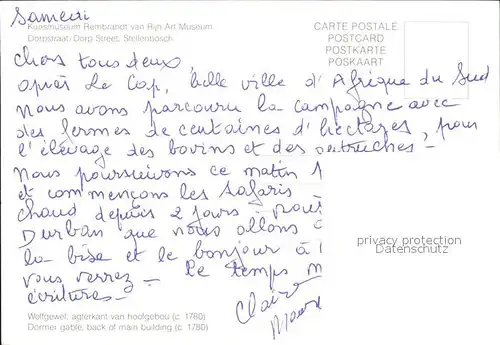 Samedi
Kunsmuseum Rembrandt van Rijn Art Museum
Dorpstraat/Dorp Street, Stellenbosch
CARTE POSTALE
POSTCARD
POSTKARTE
POSKAART
Chers tous deux,
après Le Cap, belle ville d'Afrique du Sud
Nous avons parcouru la campagne avec
des fermes de centaines d'hectares, pour
l'élevage des bovins et des autruches —
Nous poursuivons ce matin
et commençons les safaris
chaud depuis 2 jours nous
Durban que nous allons
la bise et le bonjour à
vous verrez — Le temps
écritures —
Claire
privacy protection
Datenschutz
Wolfgewel, agterkant van hoofgebou (c. 1780)
Dormer gable, back of main building (c. 1780)